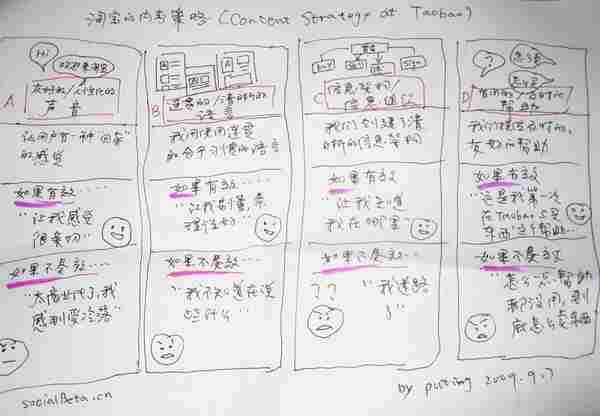 淘宝的内容策略 (Content Strategy at Taobao)
Hi
欢迎来淘宝
A
友好的/个性化的
声音
让用户有一种"回家"
的感觉
如果有效……
"让我感觉
很亲切"
如果不奏效……
"太商业化了,我
感到受冷落"
B
连贯的/清晰的
语言
我们使用连贯
的合乎习惯的语言
如果有效……
如果不奏效……
"我不知道在说
些什么"
buy
sign
C
信息架构
我们创建了清
晰的信息架构
如果有效
"让我知道
我在哪里"
如果不奏效…
? ?
"我迷路
了"
?
怎么买
D
有用的/及时的
帮助
我们提供及时的、
友好的帮助
如果有效……
"这是我第一次
在Taobao上买
东西,这个帮助…
如果不奏效…
"怎么一点帮助
都没用,到
底怎么卖东西
socialBeta.cn
by putting 2009.9.7